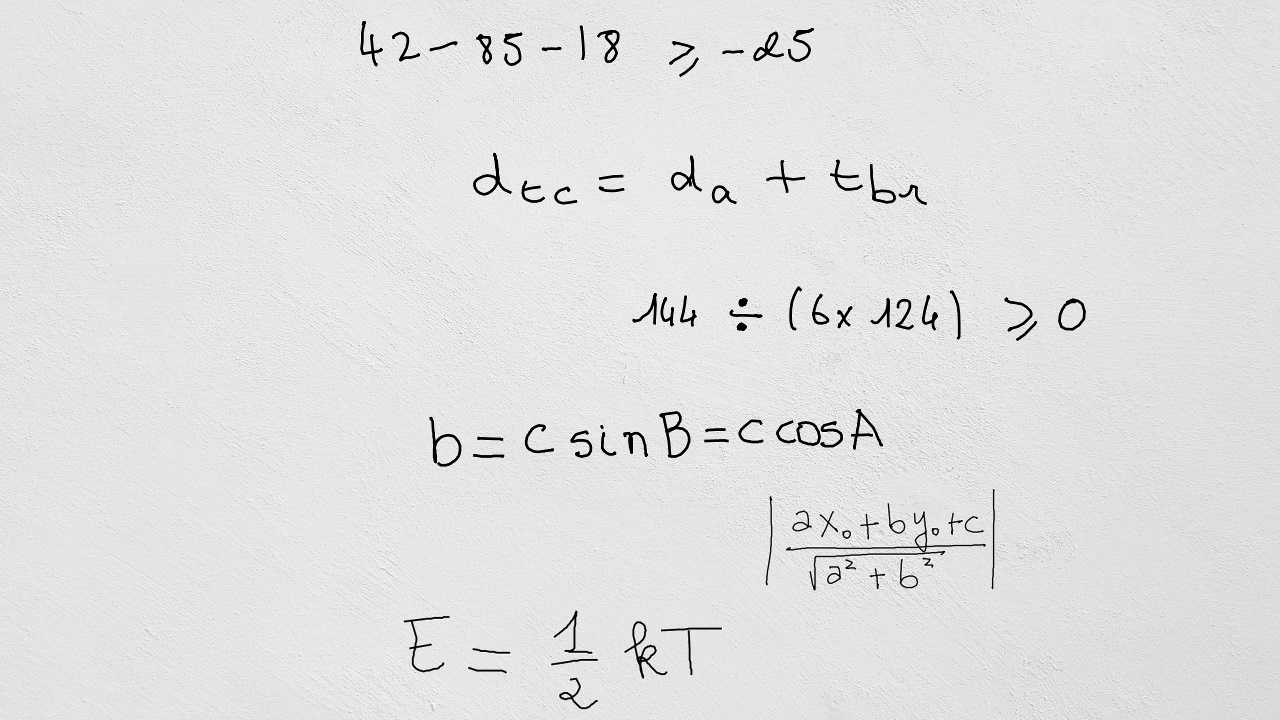 42 - 85 - 18 ⩾ -25
d_{tc} = d_a + t_{br}
144 ÷ (6 × 124) ⩾ 0
b = c sin B = c cos A
|\frac{ax_0 + by_0 + c}{\sqrt{a^2 + b^2}}|
E = \frac{1}{2} kT